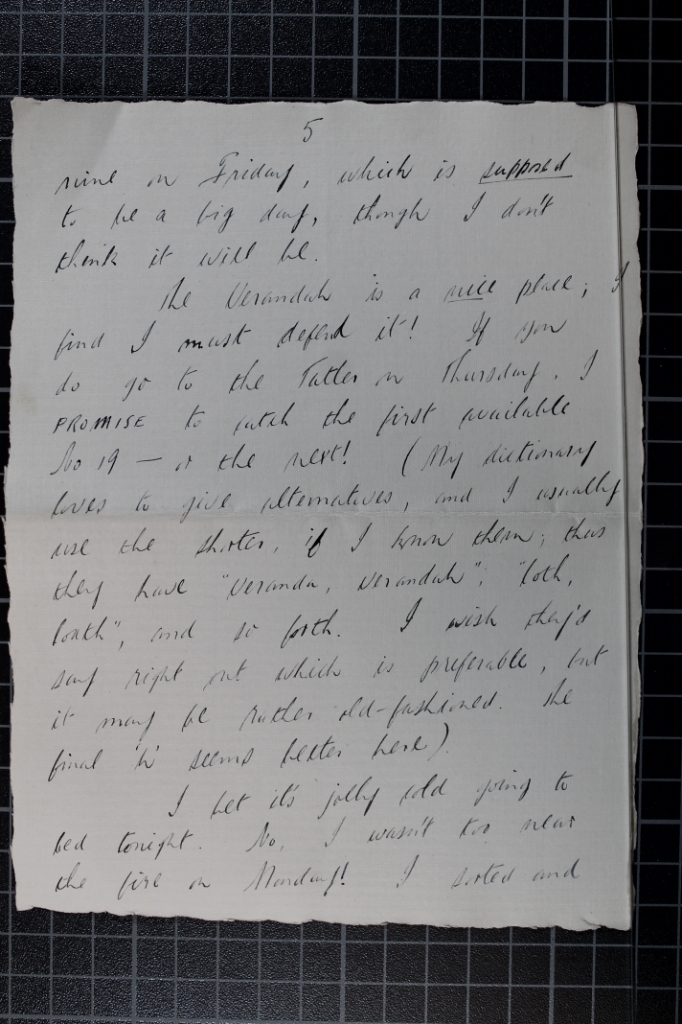 5
nine on Friday, which is supposed
to be a big day, though I don't
think it will be.
The Verandah is a nice place; I
find I must defend it! If you
do go to the Tatler on Thursday, I
PROMISE to catch the first available
No 19 — or the next! (My dictionary
loves to give alternatives, and I usually
use the shorter, if I know them; thus
they have "veranda, verandah"; "loth,
loath", and so forth. I wish they'd
say right out which is preferable, but
it may be rather old-fashioned. The
final 'h' seems better here).
I bet it's jolly cold going to
bed tonight. No, I wasn't too near
the fire on Monday! I sorted and